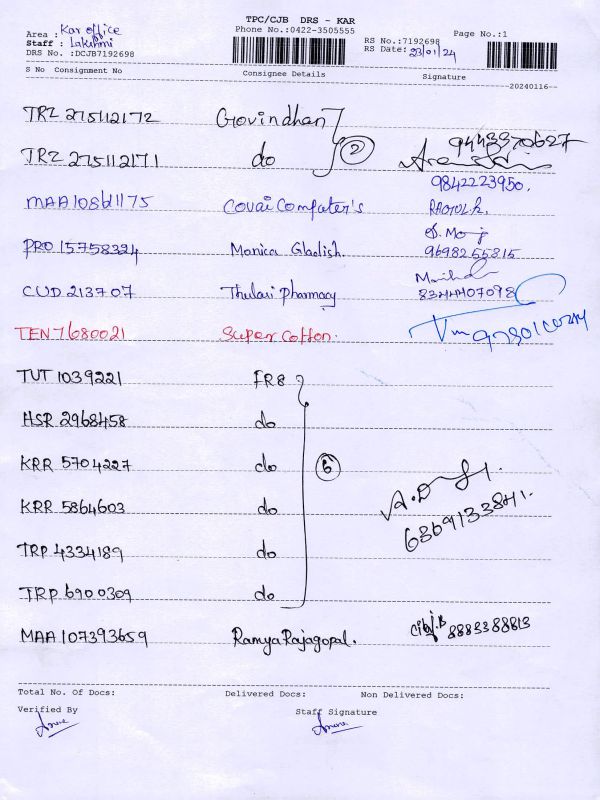 TPC/CJB DRS - KAR
Area : Kar office Phone No.:0422-3505555 RS No.:7192698 Page No.:1
Staff : Lakshmi RS Date: 23/01/24
DRS No. :DCJB7192698
S No Consignment No Consignee Details Signature --20240116--
TRZ 275112172 Govindhan
TRZ 275112171 do 2 9443370627
9842223950.
MAA108611175 Covai Computer's
PRO 15758324 Monica Gladish
9698255815
CUD 213707 Thulasi Pharmacy 8344407098
TEN7680021 Super Cotton.
TUT 1039221 FR8
HSR 2968458 do
KRR 5704227 do 6
KRR 5864603 do 6369133841.
TRP 4334189 do
TRP 6900309 do
MAA 107393659 Ramya Rajagopal. 8883388813
Total No. Of Docs: Delivered Docs: Non Delivered Docs:
Verified By Staff Signature